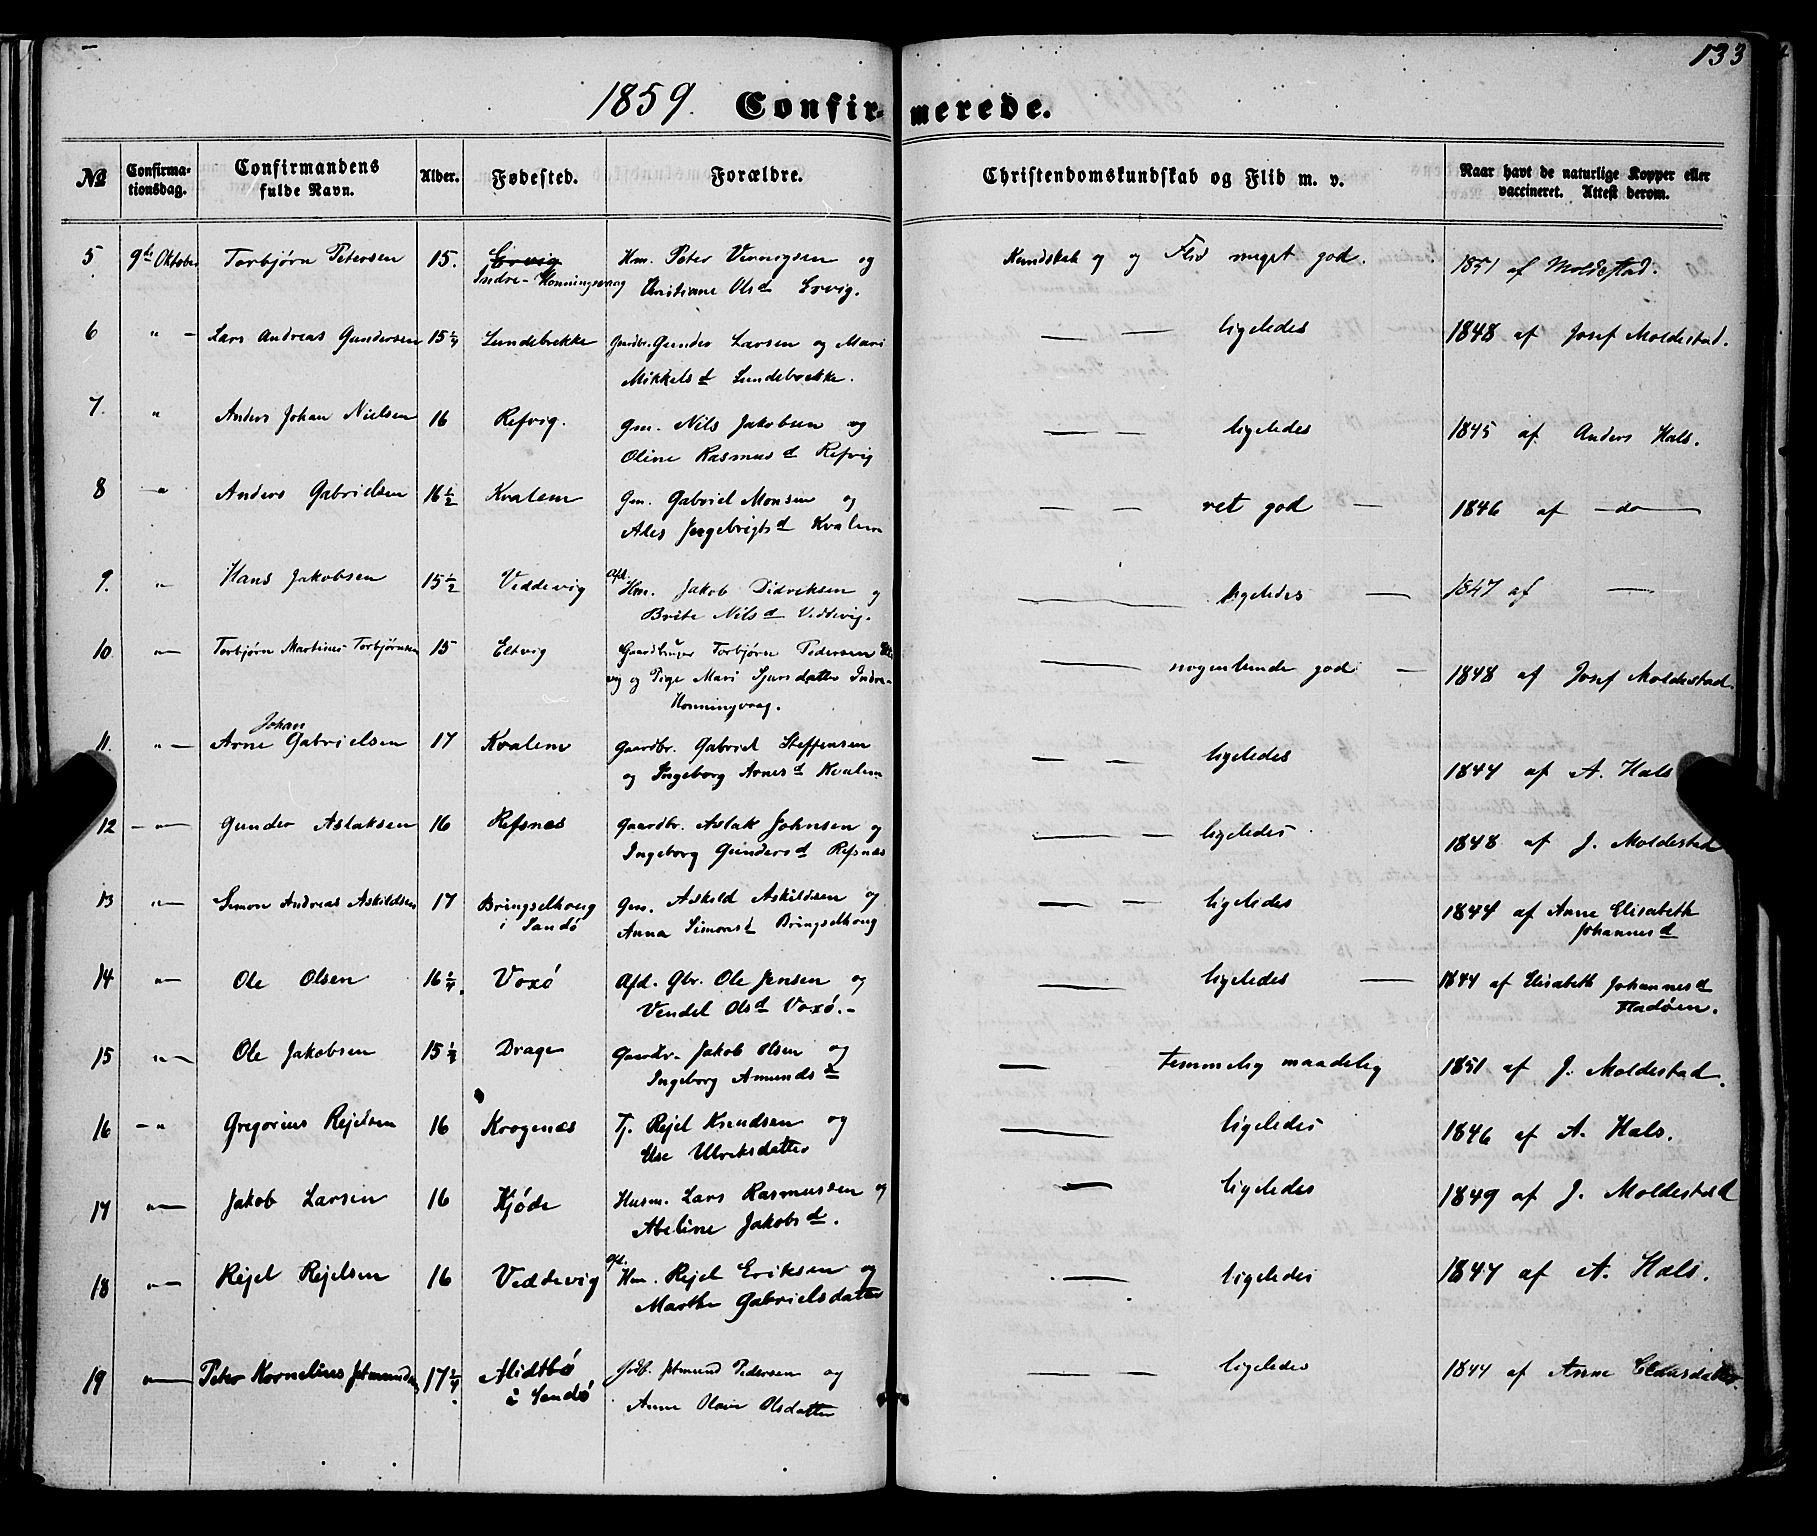 133
1859. Confirmerede.
No Confirmationsdag. Confirmandens fulde Navn. Alder. Fødested. Forældre. Christendomskundskab og Flid m. v. Naar havt de naturlige Kopper eller vaccineret. Attest derom.
5 9de Oktober Torbjörn Petersen 15. Ervig Hm. Peter og Kundskab og Flid meget god. 1851 af Moldestad.
Indre-Honningsvaag Christiane Olsd Ervig.
6 " — Lars Andreas Gundersen 15 1/4 Lundebrekke Gaardbr. Gunder Larsen og Mari — — ligeledes 1848 af Josef Moldestad.
Mikkelsd Lundebrekke.
7. " Anders Johan Nielsen 16 Refvig. Gm. Nils Jakobsen og — — ligeledes 1845 af Anders Hals.
Oline Rasmusd Refvig
8 — " Anders Gabrielsen 16 1/2 Kvalem Gm. Gabriel Monsen og — — ret god — 1846 af — do —
Ales Ingebrigtsd Kvalem
9. " Hans Jakobsen 15 1/2 Veddevig Afd. Hm. Jakob Didriksen og — ligeledes — 1847 af —
Brite Nilsd Veddevig.
10. " — Torbjörn Martinus Torbjörnsen 15 Eltvig Gaardbruger Torbjörn Pedersen Elt — nogenlunde god — 1848 af Josef Moldestad.
vig og Pige Mari Sjursdatter Indre-
Honningvaag.
Johan
11. " — Arne Gabrielsen 17 Kvalem Gaardbr. Gabriel Steffensen — — ligeledes 1844 af A. Hals
og Ingeborg Arnesd Kvalem
12 — " — Gunder Aslaksen 16 Refsnæs Gaardbr. Aslak Johnsen og — — ligeledes 1848 af J. Moldestad
Ingeborg Gundersd Refsnæs
13 " — Simon Andreas Askildsen 17 Bringselhoug Gm. Askild Askildsen og — — ligeledes 1844 af Anne Elisabeth
i Sandö Anna Simonsd Bringselhoug Johannesd
14 " — Ole Olsen 16 1/4. Voxö Afd. Gbr. Ole Jensen og — ligeledes — 1844 af Elisabeth Johannesd
Vendel Olsd Voxö. — Fladöen.
15 " — Ole Jakobsen 15 1/2 Drage Gaardbr. Jakob Olsen og — temmelig maadelig 1851 af J. Moldestad.
Ingeborg Amundsd
16 — " Gregorius Rejelsen 16 Krogenæs Tj. Rejel Knudsen og — ligeledes 1846 af A. Hals.
Else Ulriksdatter
17 " — Jakob Larsen 16 Kjöde Husm. Lars Rasmussen og — ligeledes 1849 af J. Moldestad
Abeline Jakobsd.
18 " — Rejel Rejelsen 16 Veddevig Afd. Hm. Rejel Eriksen og — ligeledes 1847 af A. Hals.
Marthe Gabrielsdatter
19 " — Peter Kornelius Jetmundsen 17 1/4. Midtbö Jetmund Pedersen og — — ligeledes 1844 af Anne Clausdatter.
i Sandö Anne Olsdatter